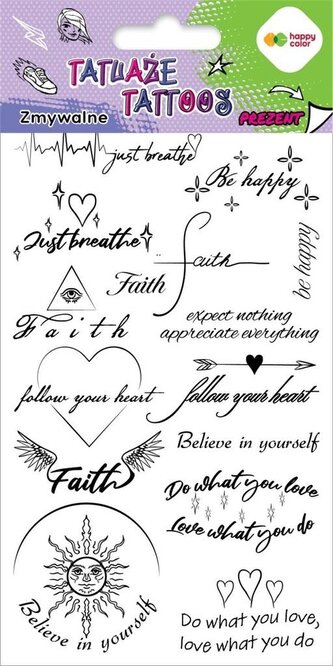 happy
color
TATUAŻE
TATTOOS
Zmywalne
PREZENT
just breathe
Be happy
Just breathe
faith
Faith
be happy
Faith
expect nothing
appreciate everything
follow your heart
follow your heart
Believe in yourself
Faith
Do what you love
Love what you do
Believe in yourself
Do what you love,
love what you do